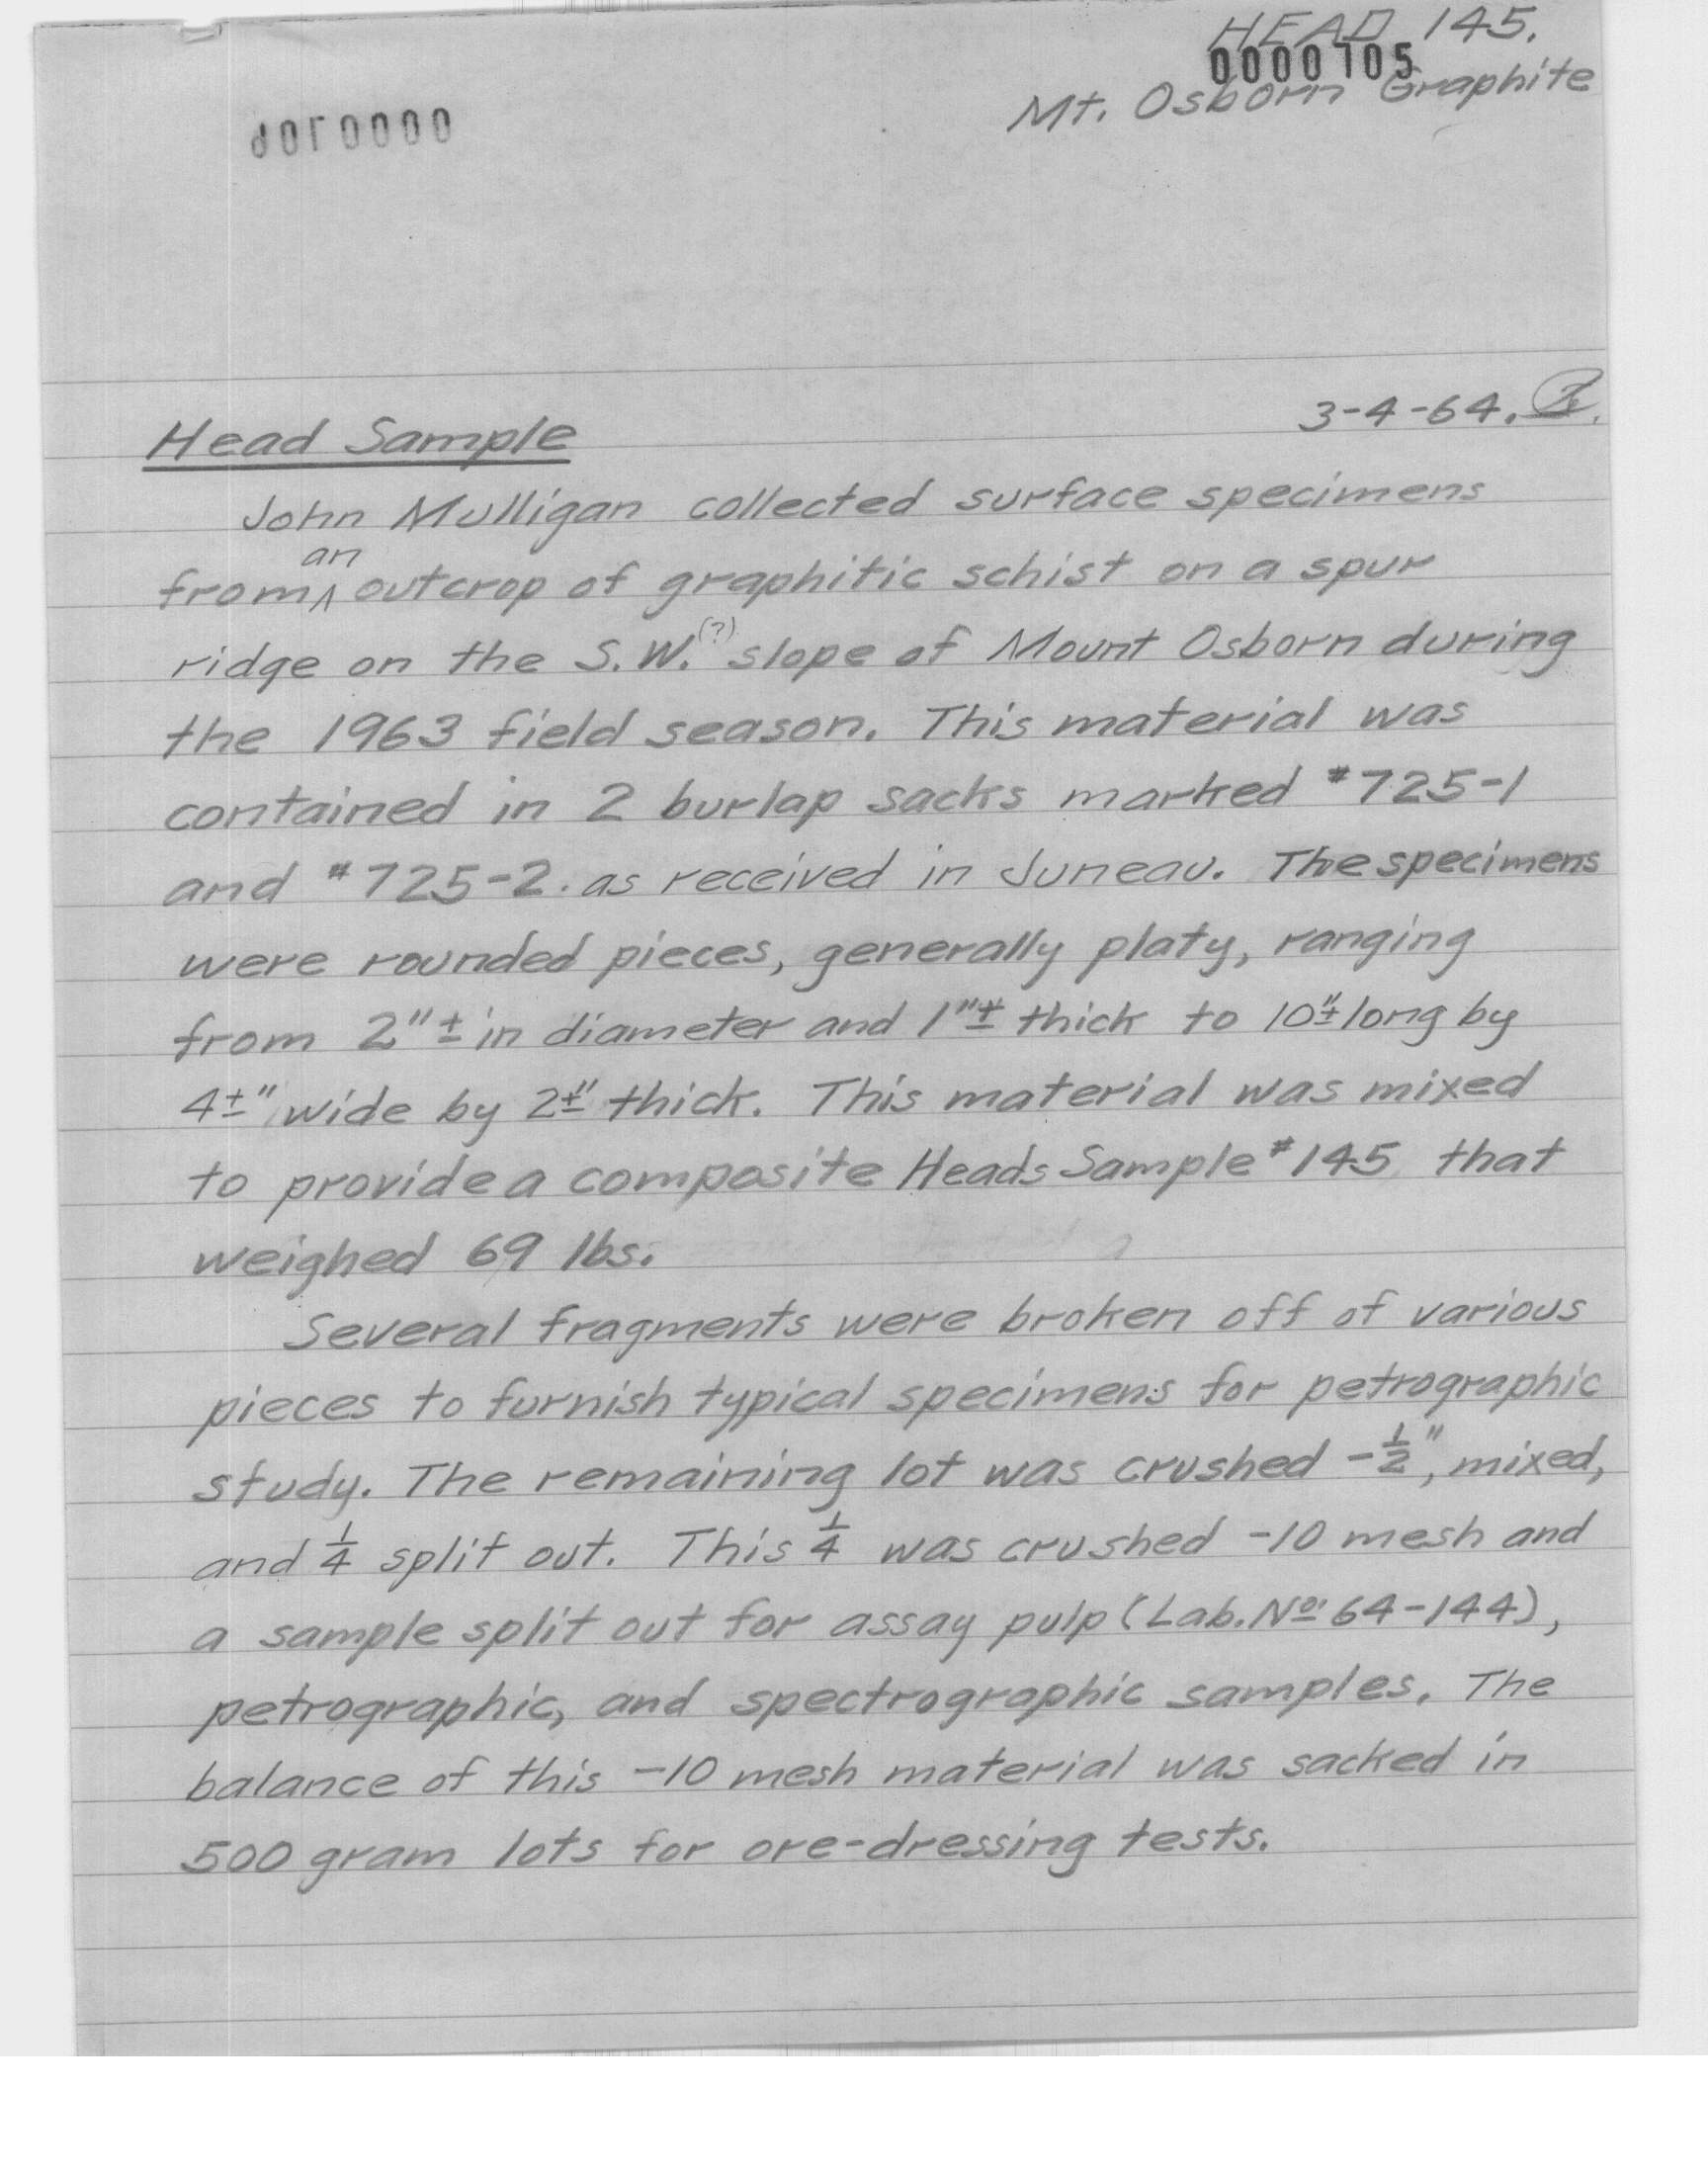 HEAD 145.
0000105
Mt. Osborn Graphite
3-4-64.
Head Sample
John Mulligan collected surface specimens
from an outcrop of graphitic schist on a spur
ridge on the S.W.(?) slope of Mount Osborn during
the 1963 field season. This material was
contained in 2 burlap sacks marked #725-1
and #725-2. as received in Juneau. The specimens
were rounded pieces, generally platy, ranging
from 2"± in diameter and 1"± thick to 10"± long by
4±" wide by 2±" thick. This material was mixed
to provide a composite Heads Sample #145 that
weighed 69 lbs.
Several fragments were broken off of various
pieces to furnish typical specimens for petrographic
study. The remaining lot was crushed -½", mixed,
and ¼ split out. This ¼ was crushed -10 mesh and
a sample split out for assay pulp (Lab. No. 64-144),
petrographic, and spectrographic samples. The
balance of this -10 mesh material was sacked in
500 gram lots for ore-dressing tests.